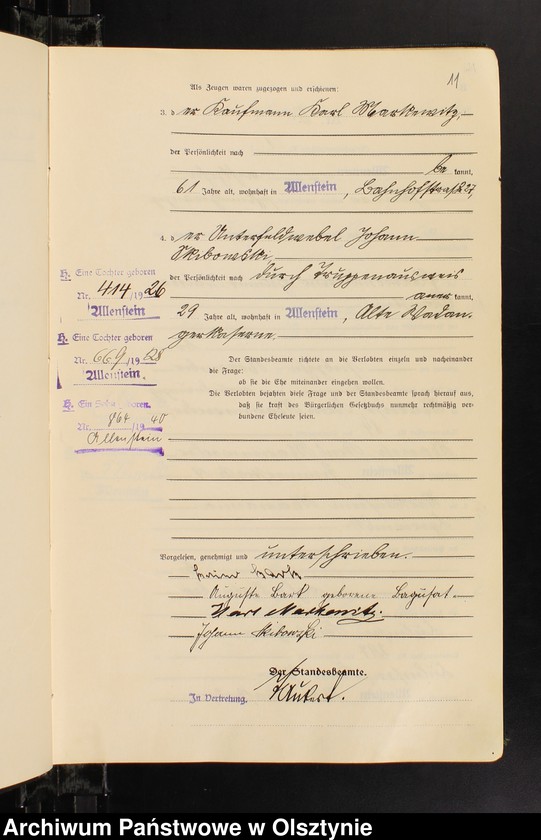 11
Als Zeugen waren zugezogen und erschienen:
3. der Kaufmann Karl Markewitz,
der Persönlichkeit nach
bekannt,
61 Jahre alt, wohnhaft in Allenstein, Bahnhofstraße 27,
4. der Unterfeldwebel Johann
Skibowski
der Persönlichkeit nach durch Truppenausweis
anerkannt,
29 Jahre alt, wohnhaft in Allenstein, Alte Wadan-
gerkaserne.
H. Eine Tochter geboren
Nr. 414/1926
Allenstein
H. Eine Tochter geboren
Nr. 669/1928
Allenstein.
H. Ein Sohn geboren.
Nr. 864/1940
Allenstein
Der Standesbeamte richtete an die Verlobten einzeln und nacheinander
die Frage:
ob sie die Ehe miteinander eingehen wollen.
Die Verlobten bejahten diese Frage und der Standesbeamte sprach hierauf aus,
daß sie kraft des Bürgerlichen Gesetzbuchs nunmehr rechtmäßig ver-
bundene Eheleute seien.
Vorgelesen, genehmigt und unterschrieben.
Bark
Auguste Bark geborene Bagusat.
Karl Markewitz.
Johann Skibowski
Der Standesbeamte.
In Vertretung.
Archiwum Państwowe w Olsztynie